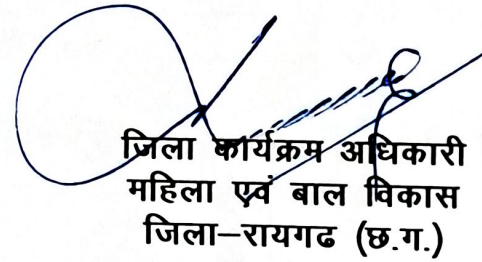 जिला कार्यक्रम अधिकारी
महिला एवं बाल विकास
जिला–रायगढ (छ.ग.)